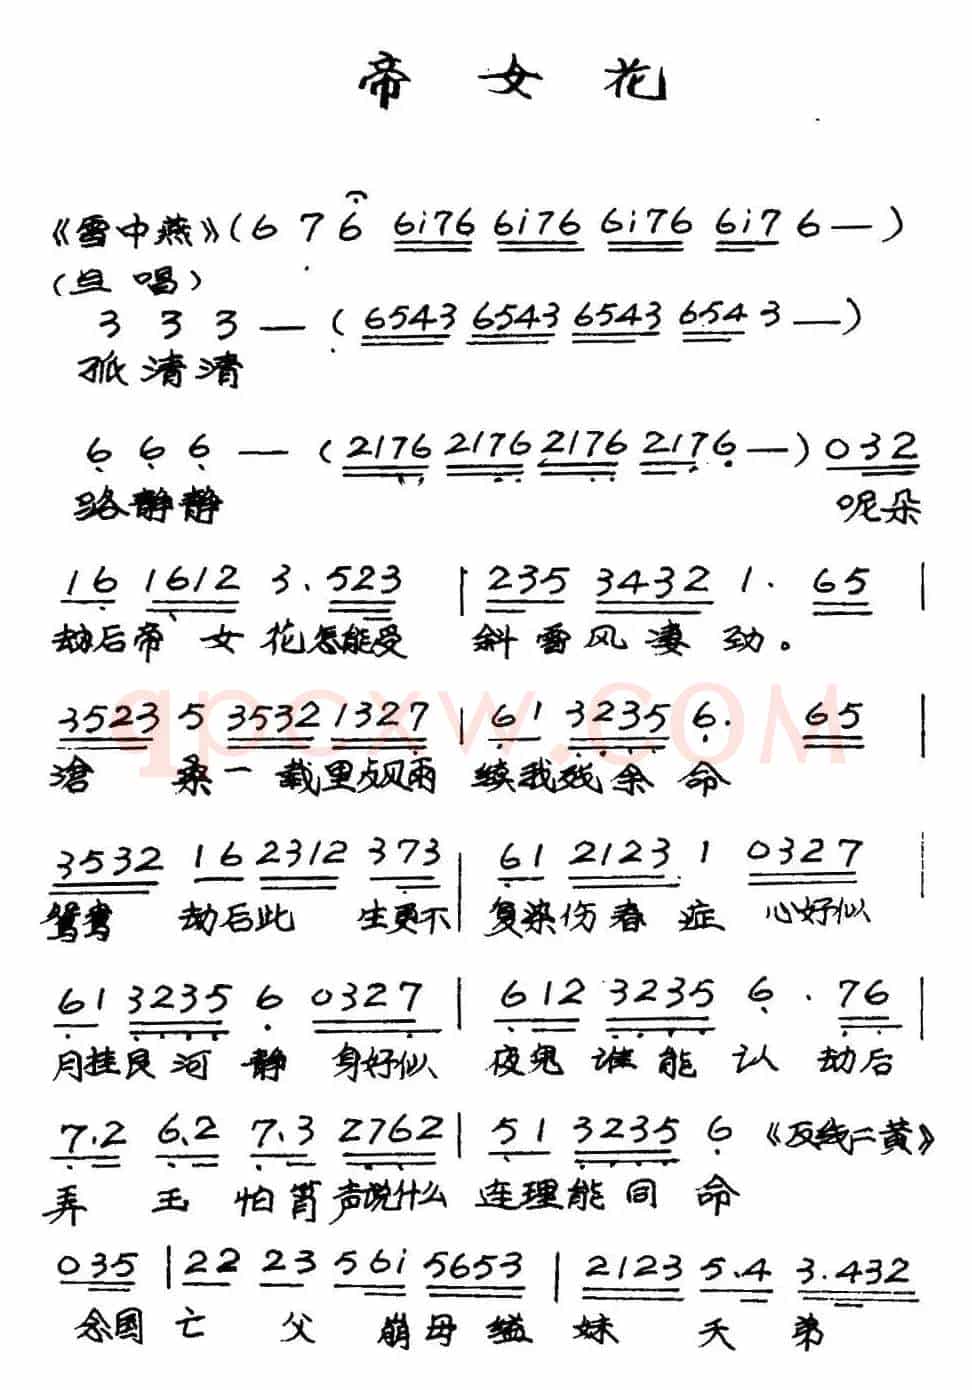 帝女花
《雪中燕》(6 7 6 6i76 6i76 6i76 6i7 6 —)
(旦唱)
3 3 3 — (6543 6543 6543 654 3 —)
孤清清
6 6 6 — (2176 2176 2176 217 6 —) 032
路静静 呢朵
16 1612 3. 523 | 235 3432 1. 65 |
劫后帝女花怎能受 斜雪风凄劲。
3523 5 3532 1327 | 61 3235 6. 65 |
沧桑一载里点风雨 续我残余命
3532 16 2312 373 | 61 2123 1 0327 |
鸳鸯劫后此生更不 复染伤春症 心好似
61 3235 6 0327 | 612 3235 6. 76 |
月挂艮河静 身好似 夜鬼谁能认 劫后
7.2 6.2 7.3 2762 | 51 3235 6 《反线二黄》
弄玉怕筲声说什么 连理能同命
035 | 22 23 56i 5653 | 2123 5.4 3.432
念国亡父崩母缢妹夭弟
qpcxw.COM